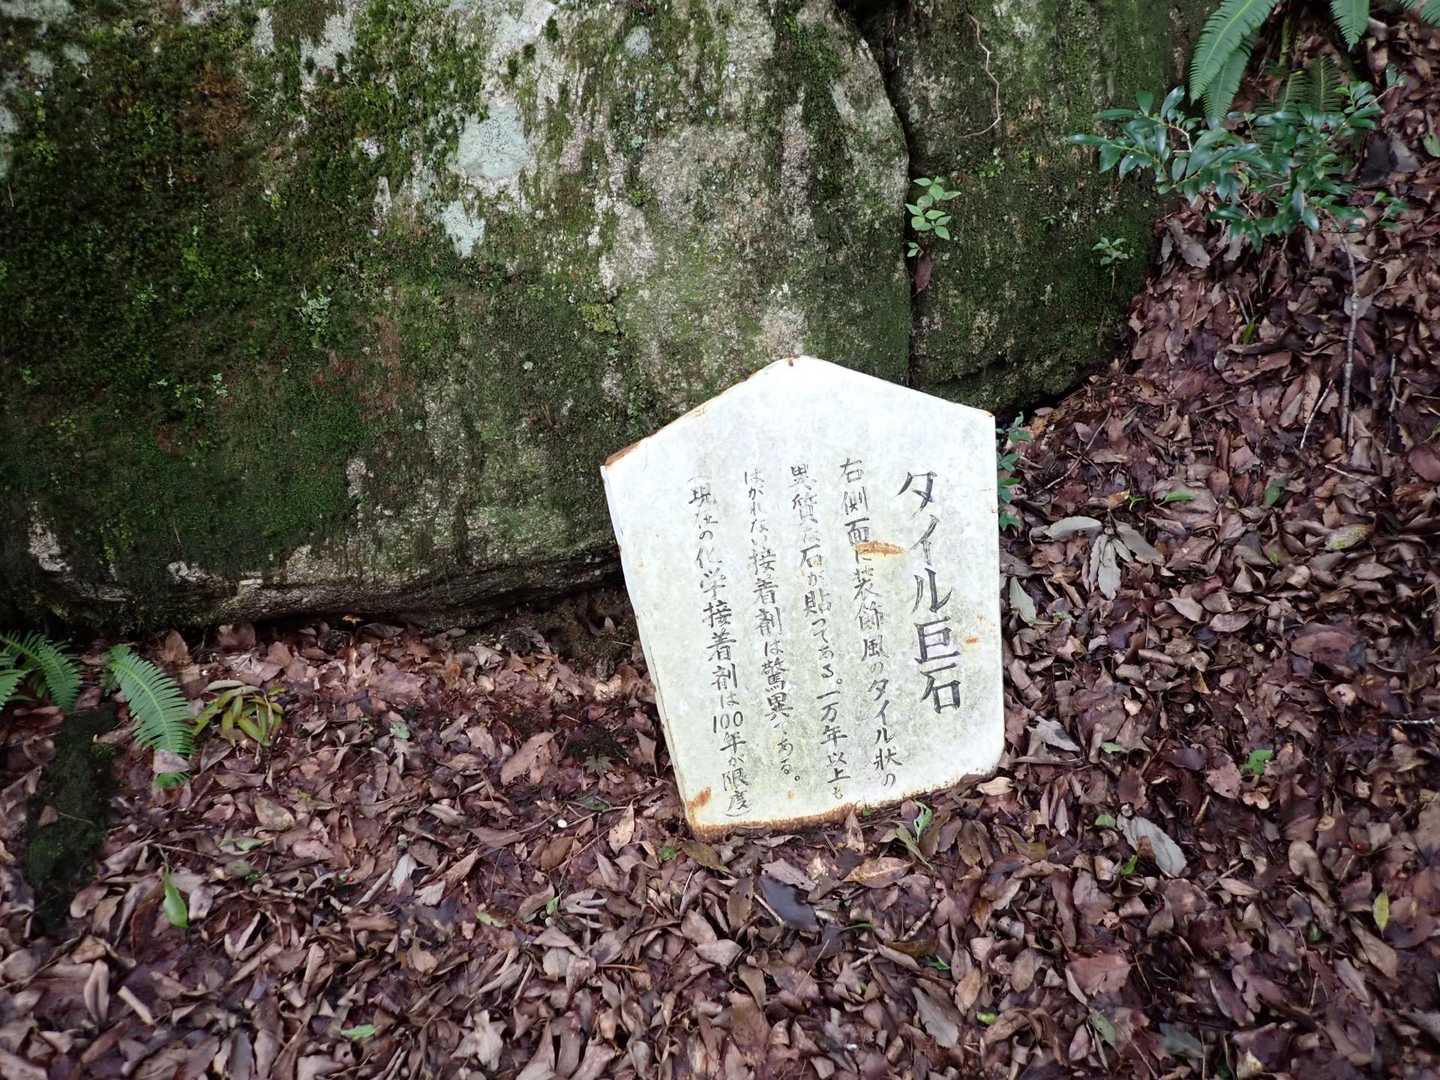 タイル巨石
右側面に装飾風のタイル状の
異質な石が貼ってある。一万年以上も
はがれない接着剤は驚異である。
(現在の化学接着剤は100年が限度)